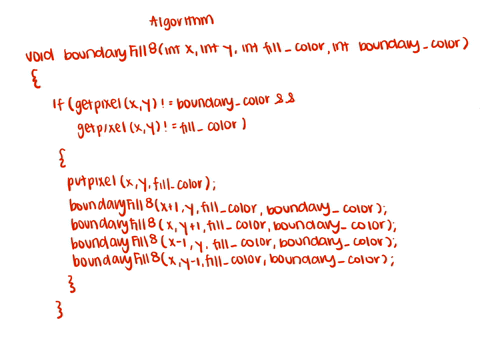 Algorithm
void boundaryFill8(int x, int y, int fill_color, int boundary_color)
{
if (getpixel(x,y) != boundary_color &&
getpixel(x,y) != fill_color)
{
putpixel(x, y, fill_color);
boundaryFill8(x+1, y, fill_color, boundary_color);
boundaryFill8(x, y+1, fill_color, boundary_color);
boundaryFill8(x-1, y, fill_color, boundary_color);
boundaryFill8(x, y-1, fill_color, boundary_color);
}
}